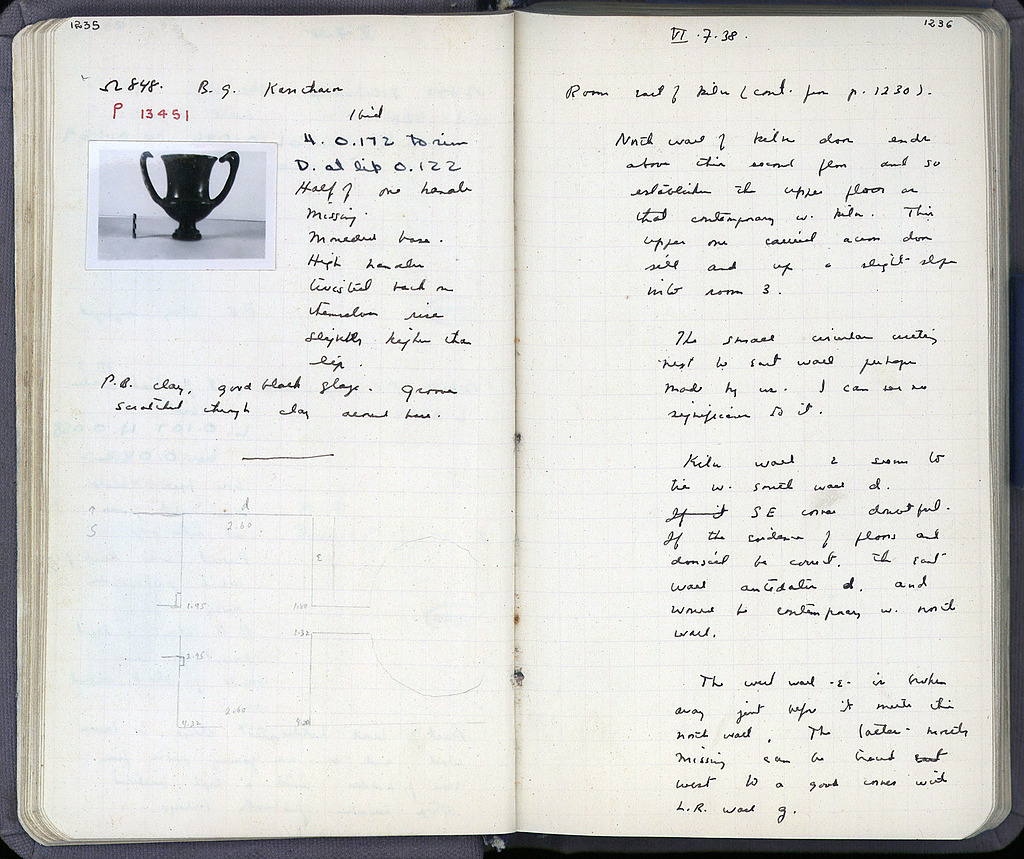 1235
Ω 848. B. g. Kantharos
P 13451
Ibid
H. 0.172 to rim
D. at lip 0.122
Half of one handle
missing.
Moulded base.
High handles
twisted back on
themselves rise
slightly higher than
lip.
P.B. clay, good black glaze. Groove
scratched through clay around base.
d
S
2.60
ε
1.95
1.80
1.32
2.95
2.60
4.32
4.20
1236
VI.7.38.
Room east of kiln (cont. from p. 1230).
North wall of kiln door ends
above this second floor and so
establishes the upper floor as
that contemporary w. kiln. This
upper one carried across door
sill and up a slight slope
into room 3.
The small circular cutting
next to east wall perhaps
made by us. I can see no
significance to it.
Kiln wall 2 seems to
tie w. south wall d.
If it SE corner doubtful.
If the evidence of floors and
doorsill be correct, the east
wall antedates d. and
would be contemporary w. north
wall.
The west wall -ε- is broken
away just before it meets this
north wall. The latter- mostly
missing can be traced east
west to a good corner with
L.R. wall g.